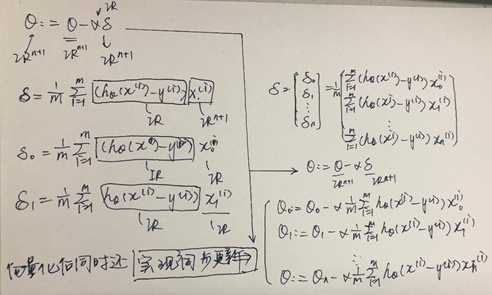 θ := θ - αδ
ℝ
ℝⁿ⁺¹ ℝⁿ⁺¹ ℝⁿ⁺¹
δ = 1/m Σᵢ₌₁ᵐ (hθ(x⁽ⁱ⁾) - y⁽ⁱ⁾) x⁽ⁱ⁾
ℝ ℝⁿ⁺¹
δ₀ = 1/m Σᵢ₌₁ᵐ (hθ(x⁽ⁱ⁾) - y⁽ⁱ⁾) x₀⁽ⁱ⁾
ℝ ℝ
δ₁ = 1/m Σᵢ₌₁ᵐ (hθ(x⁽ⁱ⁾) - y⁽ⁱ⁾) x₁⁽ⁱ⁾
ℝ ℝ
向量化后同时还 实现同步更新
δ = [δ₀ δ₁ ⋮ δₙ] = 1/m
Σᵢ₌₁ᵐ (hθ(x⁽ⁱ⁾) - y⁽ⁱ⁾) x₀⁽ⁱ⁾
Σᵢ₌₁ᵐ (hθ(x⁽ⁱ⁾) - y⁽ⁱ⁾) x₁⁽ⁱ⁾
⋮
Σᵢ₌₁ᵐ (hθ(x⁽ⁱ⁾) - y⁽ⁱ⁾) xₙ⁽ⁱ⁾
θ := θ - αδ
ℝⁿ⁺¹ ℝⁿ⁺¹
θ₀ := θ₀ - α 1/m Σᵢ₌₁ᵐ (hθ(x⁽ⁱ⁾) - y⁽ⁱ⁾) x₀⁽ⁱ⁾
θ₁ := θ₁ - α 1/m Σᵢ₌₁ᵐ hθ(x⁽ⁱ⁾) - y⁽ⁱ⁾) x₁⁽ⁱ⁾
⋮
θ := θₙ - α 1/m Σᵢ₌₁ᵐ (hθ(x⁽ⁱ⁾) - y⁽ⁱ⁾) xₙ⁽ⁱ⁾